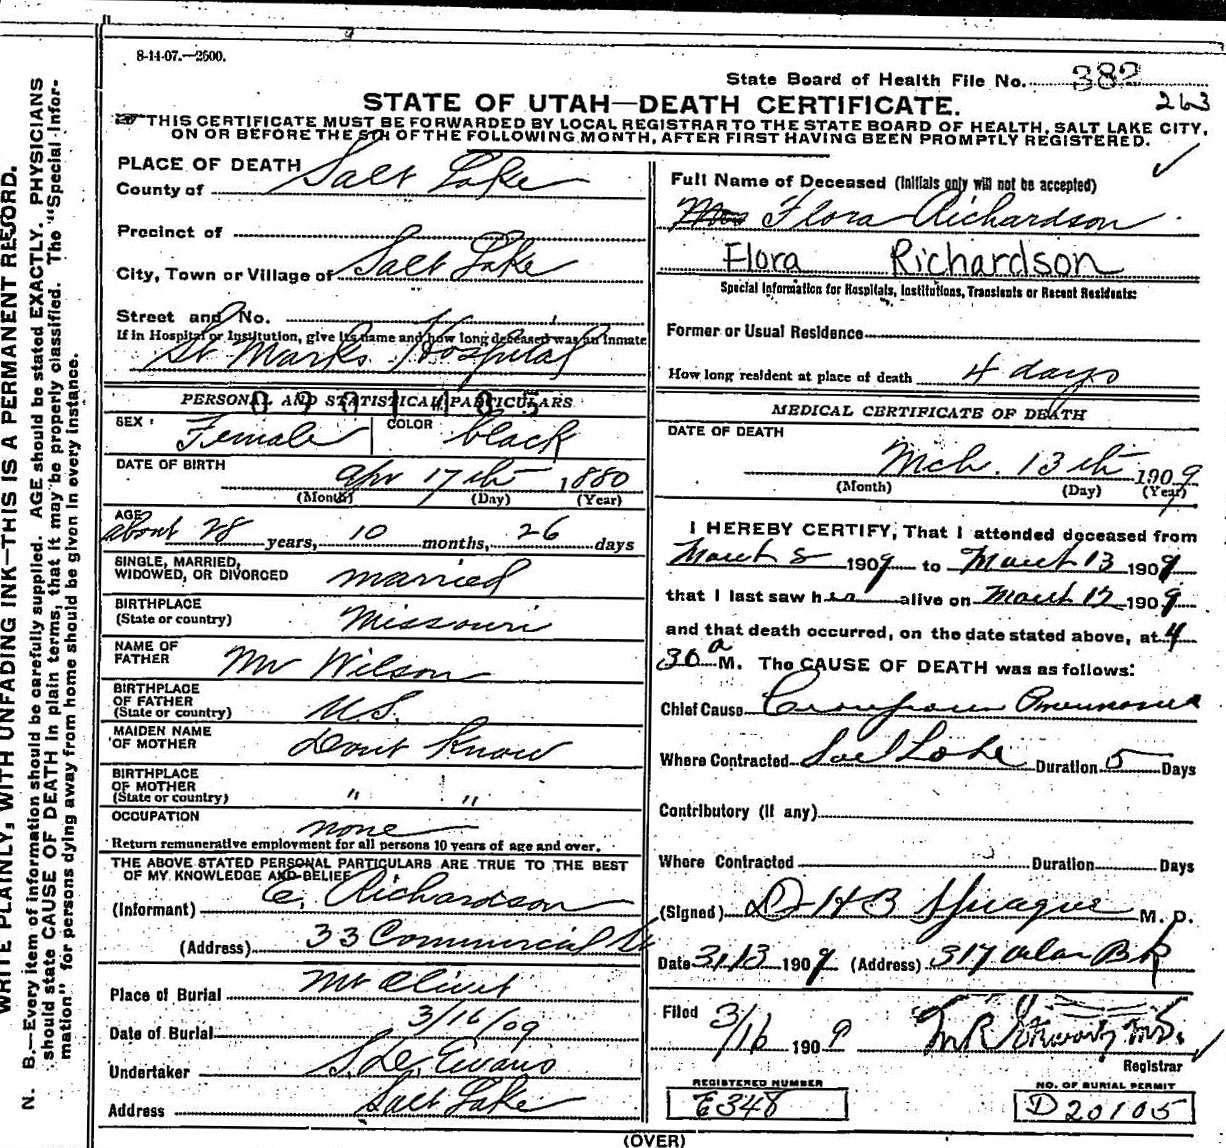 8-14-07.—2500.
State Board of Health File No. 382
263
STATE OF UTAH—DEATH CERTIFICATE.
THIS CERTIFICATE MUST BE FORWARDED BY LOCAL REGISTRAR TO THE STATE BOARD OF HEALTH, SALT LAKE CITY,
ON OR BEFORE THE 5TH OF THE FOLLOWING MONTH, AFTER FIRST HAVING BEEN PROMPTLY REGISTERED.
PLACE OF DEATH
County of Salt Lake
Precinct of
City, Town or Village of Salt Lake
Street and No.
If in Hospital or Institution, give its name and how long deceased was an inmate
St Marks Hospital
PERSONAL AND STATISTICAL PARTICULARS
SEX Female COLOR black
DATE OF BIRTH Apr 17th 1880
(Month) (Day) (Year)
AGE about 28 years, 10 months, 26 days
SINGLE, MARRIED,
WIDOWED, OR DIVORCED married
BIRTHPLACE
(State or country) Missouri
NAME OF
FATHER Mr Wilson
BIRTHPLACE
OF FATHER
(State or country) U.S.
MAIDEN NAME
OF MOTHER Dont Know
BIRTHPLACE
OF MOTHER
(State or country) " "
OCCUPATION none
Return remunerative employment for all persons 10 years of age and over.
THE ABOVE STATED PERSONAL PARTICULARS ARE TRUE TO THE BEST
OF MY KNOWLEDGE AND BELIEF
(Informant) C. Richardson
(Address) 33 Commercial St
Place of Burial Mt Olivet
Date of Burial 3/16/09
Undertaker S. D. Evans
Address Salt Lake
Full Name of Deceased (Initials only will not be accepted)
Mrs Flora Richardson
Flora Richardson
Special Information for Hospitals, Institutions, Transients or Recent Residents:
Former or Usual Residence
How long resident at place of death 4 days
MEDICAL CERTIFICATE OF DEATH
DATE OF DEATH
Mch. 13th 1909
(Month) (Day) (Year)
I HEREBY CERTIFY, That I attended deceased from
March 8 1909 to March 13 1909
that I last saw her alive on March 12 1909
and that death occurred, on the date stated above, at 4
30 a M. The CAUSE OF DEATH was as follows:
Chief Cause Croupous Pneumonia
Where Contracted Salt Lake Duration 5 Days
Contributory (if any)
Where Contracted Duration Days
(Signed) Dr H B Sprague M. D.
Date 3/13 1909 (Address) 317 Atlas Bk
Filed 3/16 1909 M R Stewart M.D.
Registrar
REGISTERED NUMBER
E348
NO. OF BURIAL PERMIT
D20105
(OVER)
WRITE PLAINLY, WITH UNFADING INK—THIS IS A PERMANENT RECORD.
N. B.—Every item of information should be carefully supplied. AGE should be stated EXACTLY. PHYSICIANS
should state CAUSE OF DEATH in plain terms, that it may be properly classified. The "Special Infor-
mation" for persons dying away from home should be given in every instance.